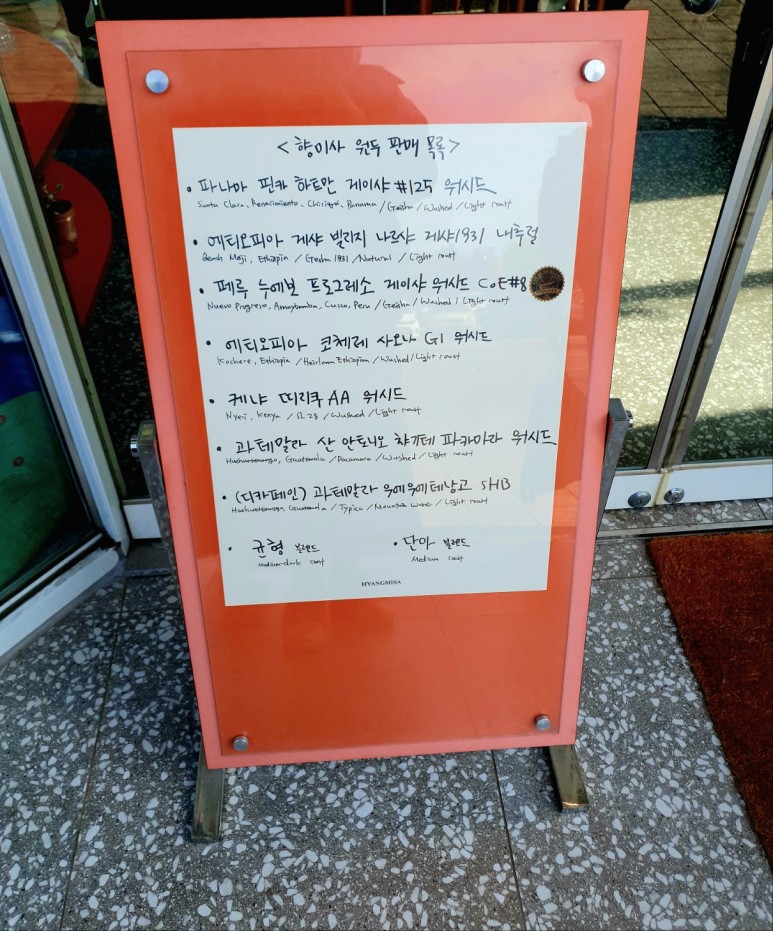 < 향미사 원두 판매 목록 >
• 파나마 핀카 하트만 게이샤 #125 워시드
Santa Clara, Renacimiento, Chiriquí, Panama / Geisha / Washed / Light roast
• 에티오피아 게샤 빌리지 나르샤 게샤1931 내추럴
Bench Maji, Ethiopia / Gesha 1931 / Natural / Light roast
• 페루 누에보 프로그레소 게이샤 워시드 CoE#8
Nuevo Progreso, Amaybamba, Cusco, Peru / Geisha / Washed / Light roast
• 에티오피아 코체레 사오나 G1 워시드
Kochere, Ethiopia / Heirloom Ethiopian / Washed / Light roast
• 케냐 띠리쿠 AA 워시드
Nyeri, Kenya / SL28 / Washed / Light roast
• 과테말라 산 안토니오 챠기테 파카마라 워시드
Huehuetenango, Guatemala / Pacamara / Washed / Light roast
• (디카페인) 과테말라 우에우에테낭고 SHB
Huehuetenango, Guatemala / Typica / Mountain water / Light roast
• 균형 블렌드 • 단아 블렌드
Medium-dark roast Medium roast
HYANGMISA